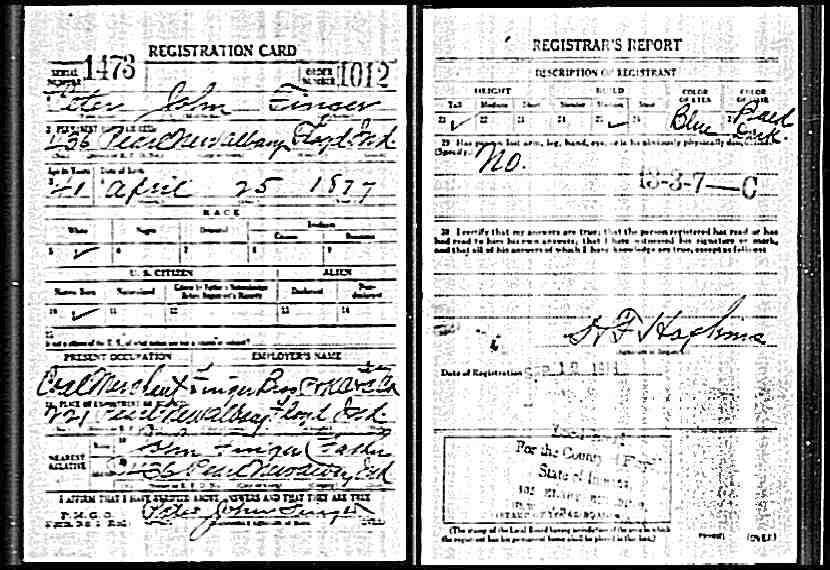 REGISTRATION CARD
SERIAL NUMBER 1473 ORDER NUMBER 1012
1 Peter John Finger
2 PERMANENT
36 Pearl New Albany Floyd Ind.
Age in Years Date of Birth
41 April 25 1877
RACE
White Negro Oriental Indian
Citizen
5 ✓ 6 7 8 9
U. S. CITIZEN ALIEN
Native Born Naturalized Citizen by Father's Naturalization Before Registrant's Majority Declarant Non-declarant
10 ✓ 11 12 13 14
15
If not a citizen of the U. S., of what nation are you a citizen or subject?
PRESENT OCCUPATION EMPLOYER'S NAME
Coal Merchant Finger Bros
PLACE OF EMPLOYMENT OR BUSINESS
221 Pearl New Albany Floyd Ind
NEAREST RELATIVE
Name John Finger Father
36 Pearl New Albany, Ind
I AFFIRM THAT I HAVE VERIFIED ABOVE ANSWERS AND THAT THEY ARE TRUE
P. M. G. O.
Form No. 1 (Red) Peter John Finger
REGISTRAR'S REPORT
DESCRIPTION OF REGISTRANT
HEIGHT BUILD COLOR OF EYES COLOR OF HAIR
Tall Medium Short Slender Medium Stout
21 ✓ 22 23 24 25 ✓ 26 Blue Bald Dark
29 Has person lost arm, leg, hand, eye, or is he obviously physically
(Specify.) No.
13-3-7—C
30 I certify that my answers are true; that the person registered has read or has
had read to him his own answers; that I have witnessed his signature or mark,
and that all of his answers of which I have knowledge are true, except as follows:
Hopkins
Date of Registration SEP 12
For the County of Floyd
State of Indiana
(The stamp of the Local Board having jurisdiction of the area in which
the registrant has his permanent home shall be placed in this box.)
(OVER)